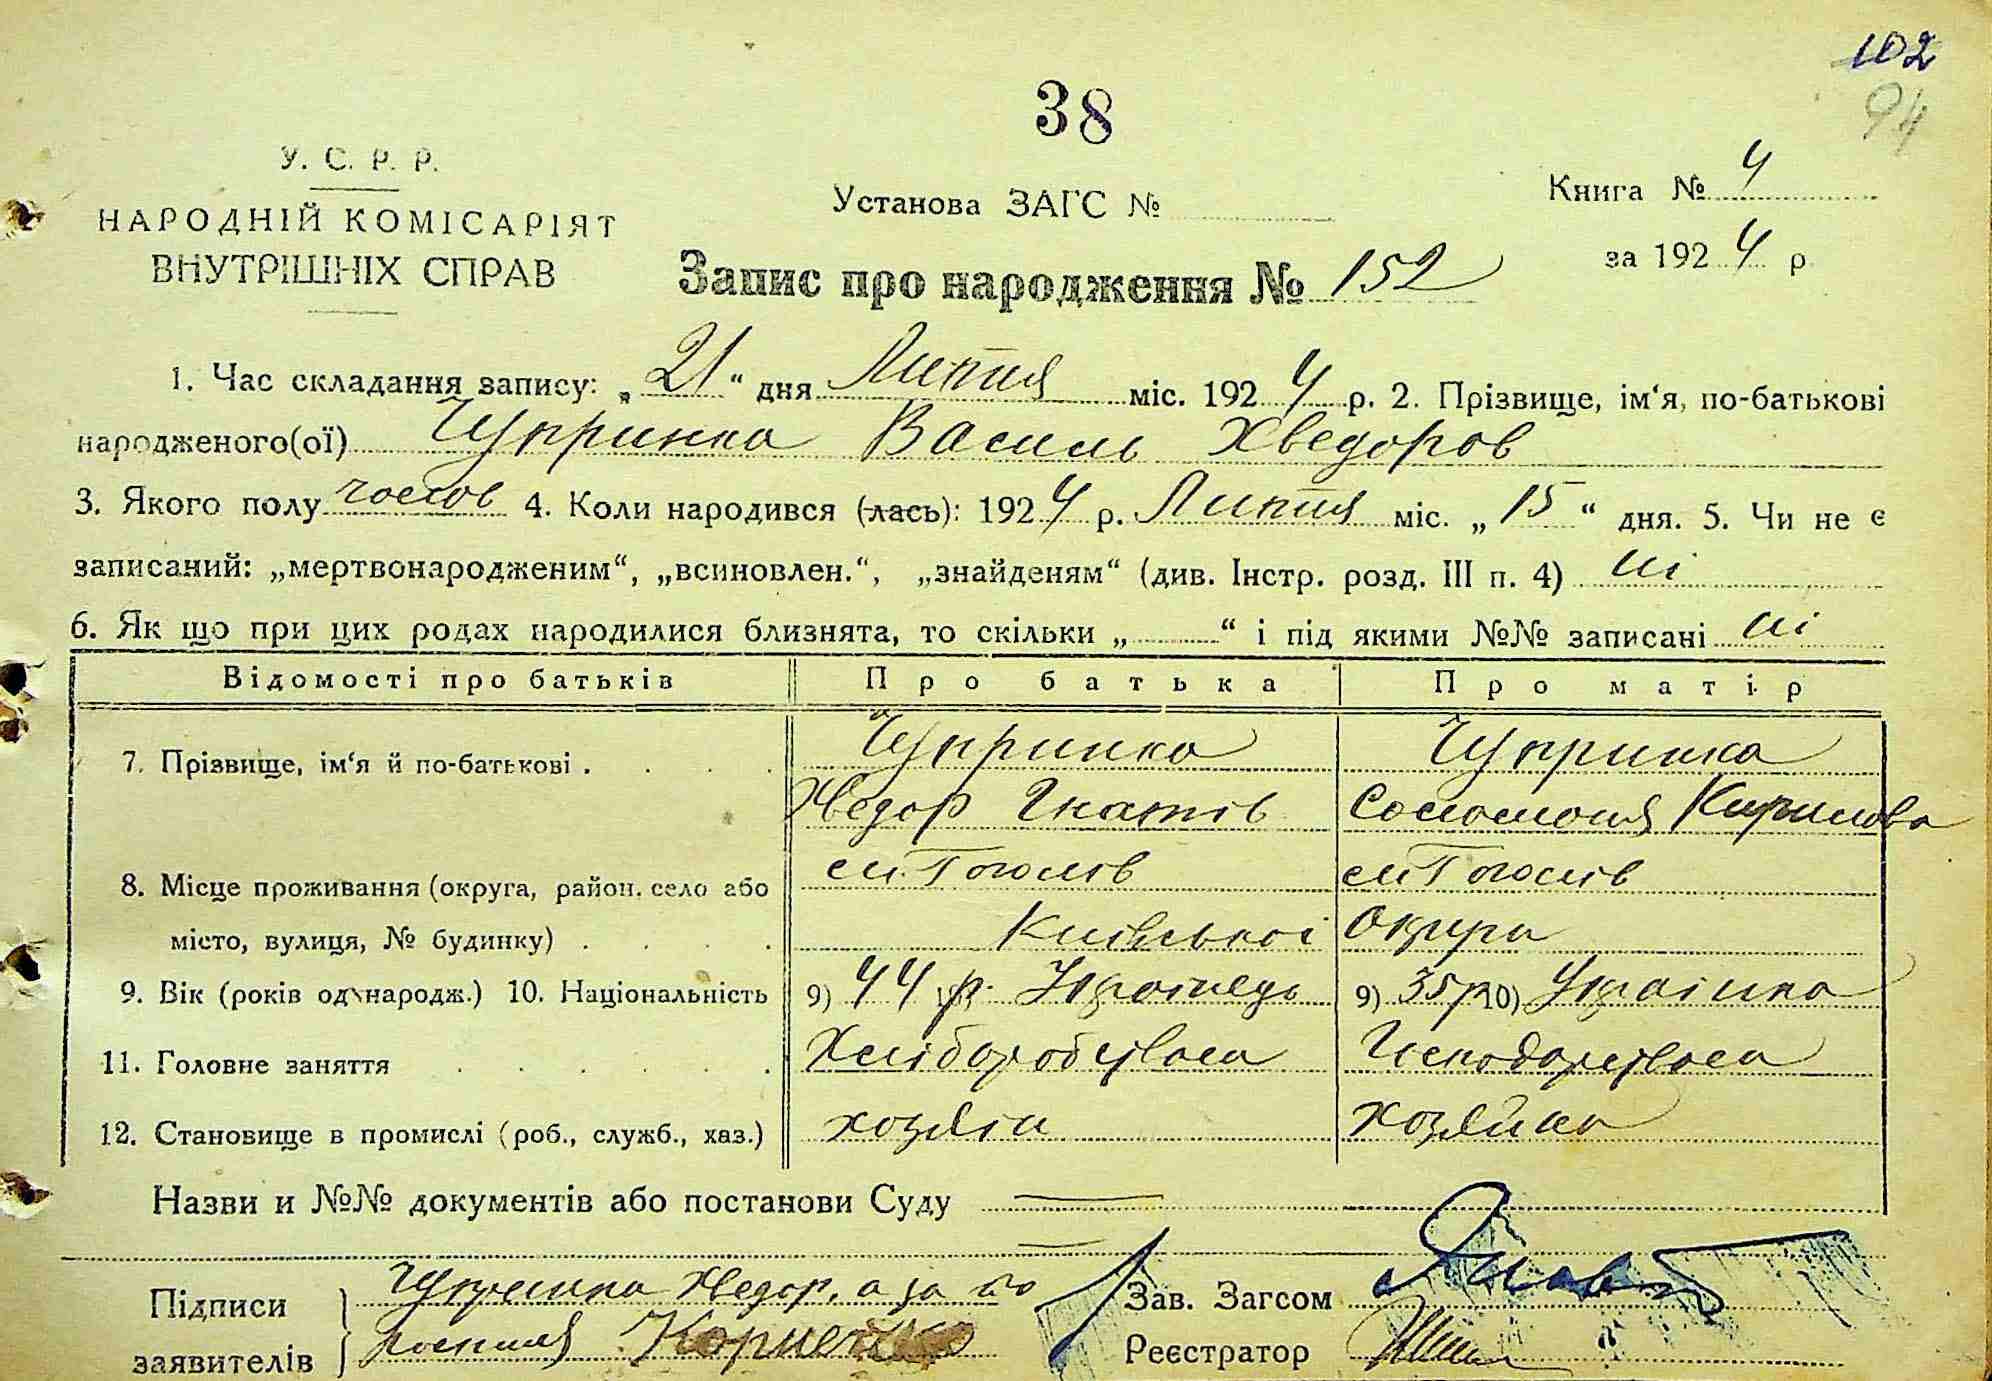 102
94
38
У. С. Р. Р.
НАРОДНІЙ КОМІСАРІЯТ
ВНУТРІШНІХ СПРАВ
Установа ЗАГС №
Книга № 4
за 1924 р.
Запис про народження № 152
1. Час складання запису: „21“ дня Липня міс. 1924 р. 2. Прізвище, ім‘я, по-батькові
народженого(ої) Чупринка Василь Хведоров
3. Якого полу чолов 4. Коли народився (лась): 1924 р. Липня міс. „15“ дня. 5. Чи не є
записаний: „мертвонародженим“, „всиновлен.“, „знайденям“ (див. Інстр. розд. III п. 4) ні
6. Як що при цих родах народилися близнята, то скільки „ “ і під якими №№ записані ні
Відомості про батьків Про батька Про матір
7. Прізвище, ім‘я й по-батькові . . . . Чупринка Чупринка
Хведор Гнатів Соломонія Кирилова
8. Місце проживання (округа, район, село або м. Гоголів м. Гоголів
місто, вулиця, № будинку) . . . . Київської Округи
9. Вік (років од народж.) 10. Національність 9) 44 р. Українець 9) 35 р 10) Українка
11. Головне заняття . . . . . . Хліборобство Господарство
12. Становище в промислі (роб., служб., хаз.) хозяін хозяйка
Назви и №№ документів або постанови Суду
Підписи Чупринка Хведор, а за його
заявителів росписався Корнієнко
Зав. Загсом
Реєстратор